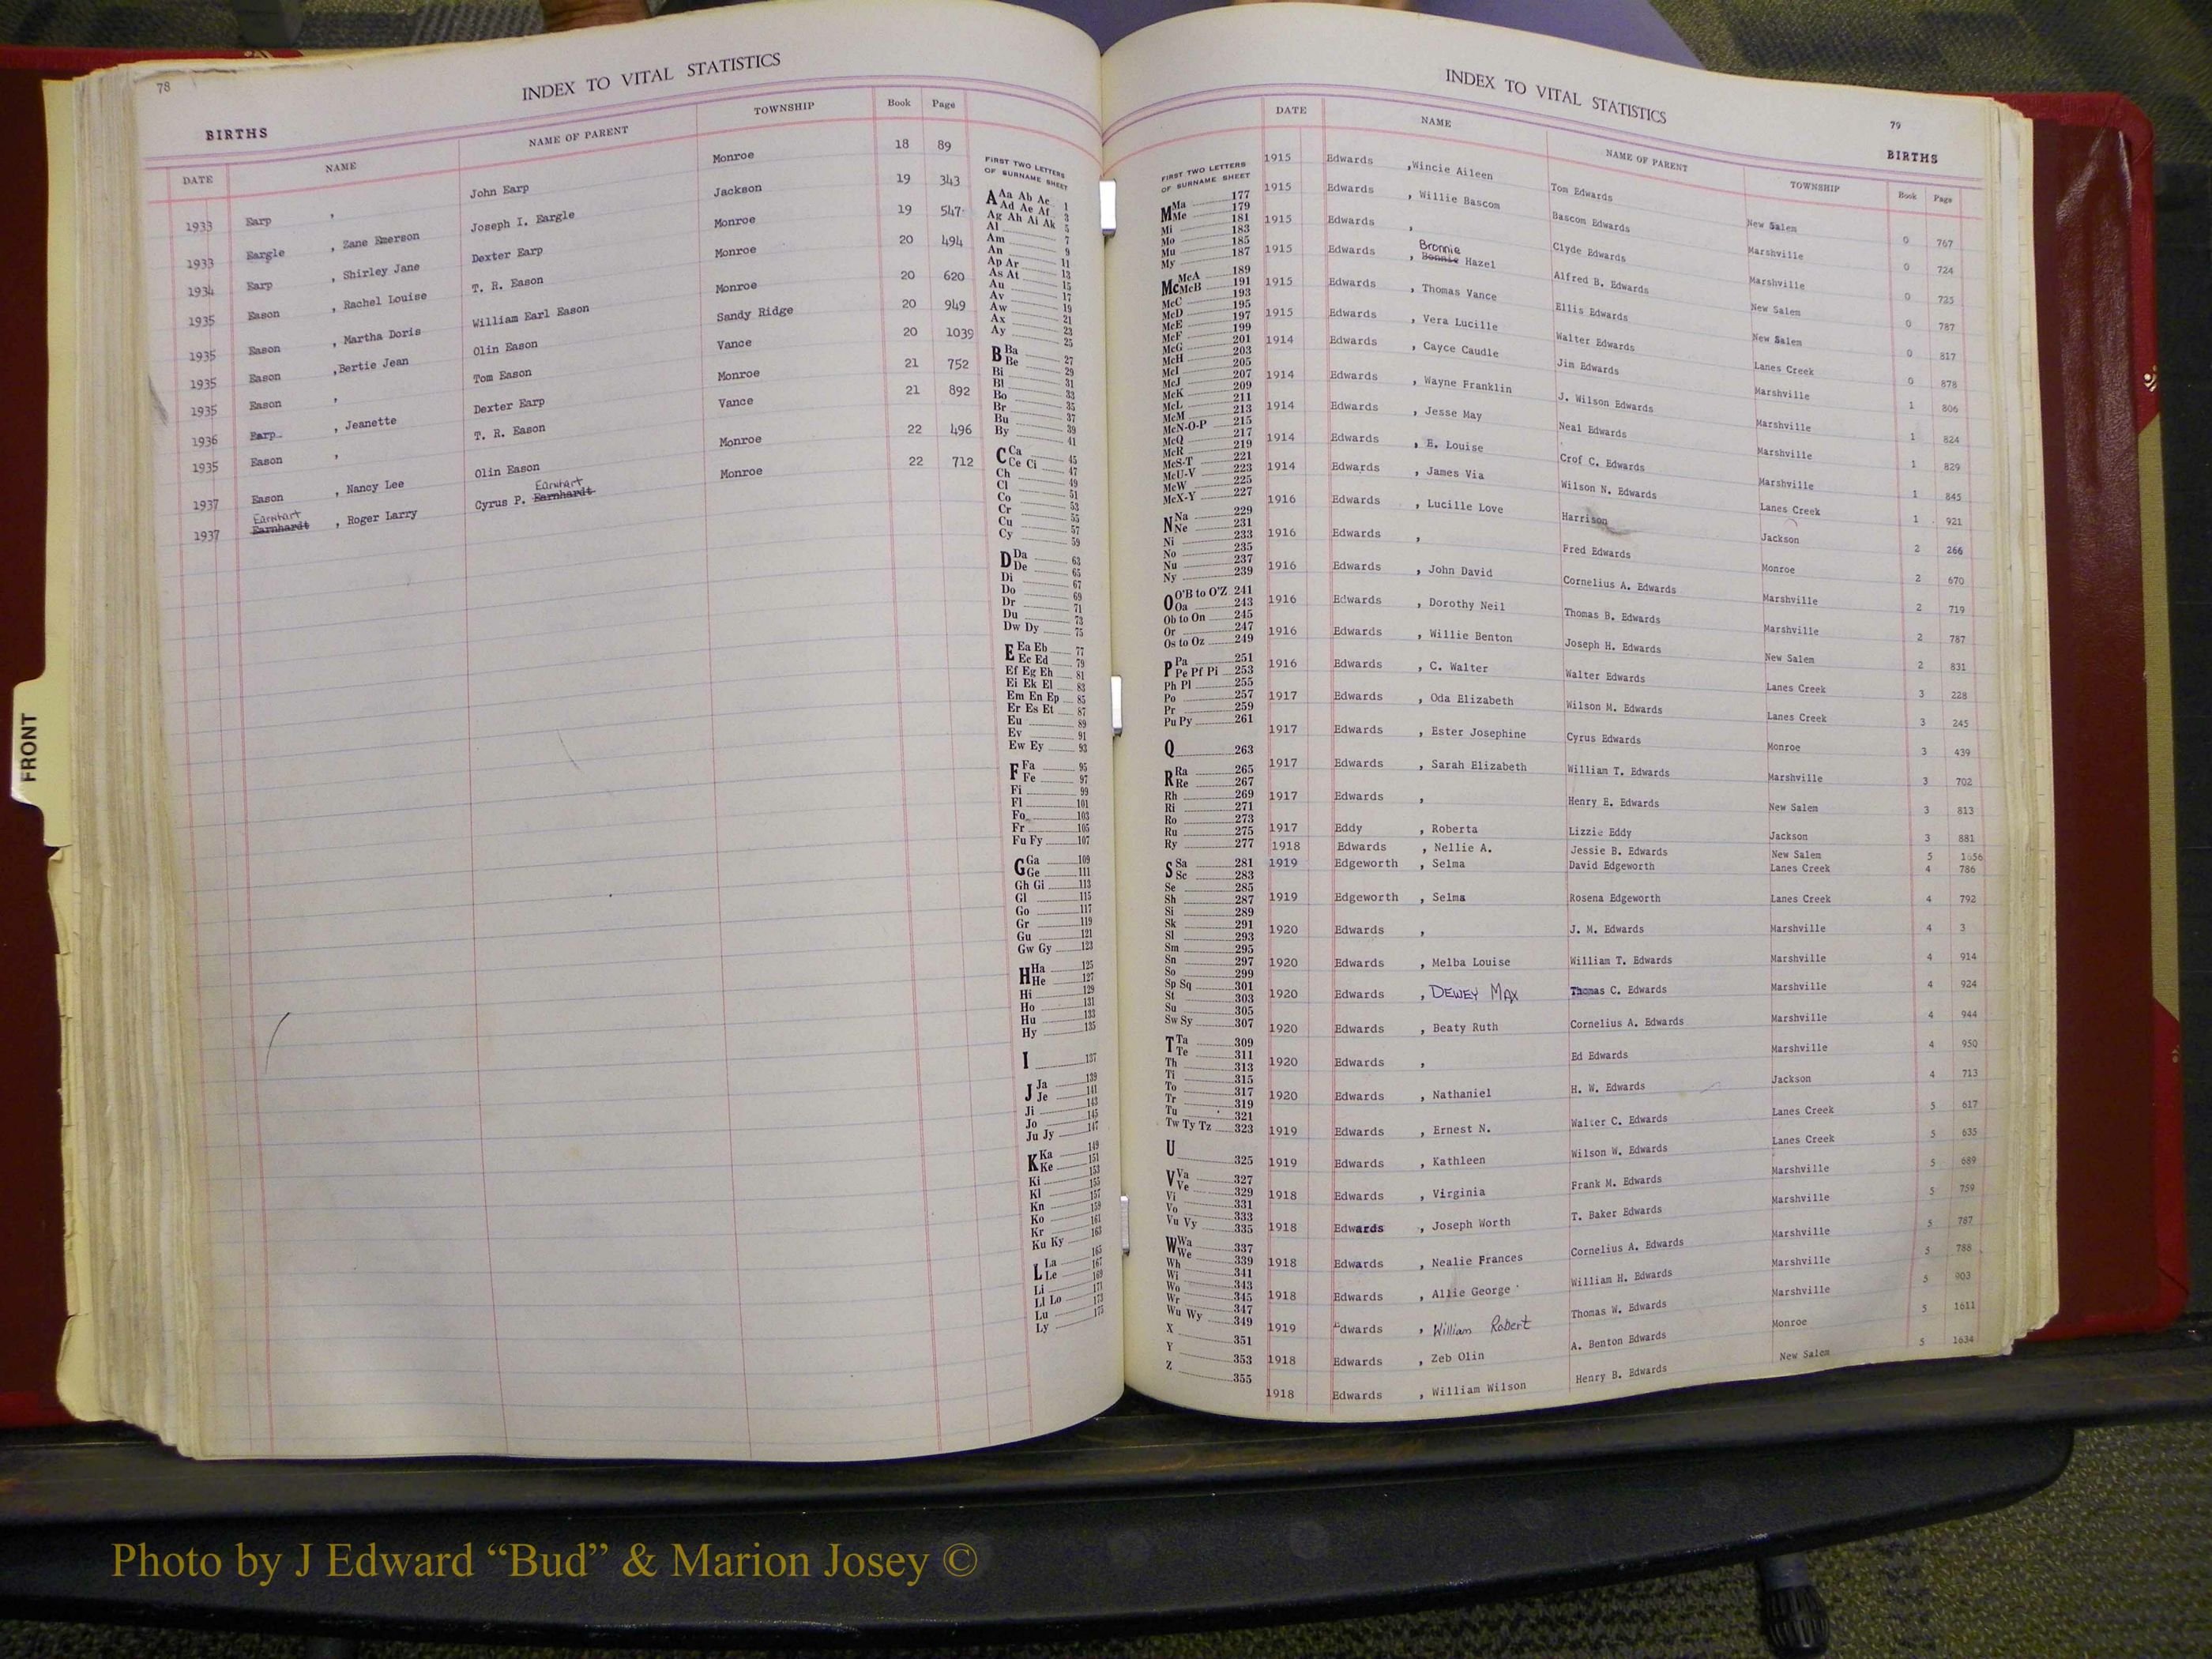 78
INDEX TO VITAL STATISTICS
BIRTHS
DATE NAME NAME OF PARENT TOWNSHIP Book Page
1933 Earp , John Earp Monroe 18 89
1933 Eargle , Zane Emerson Joseph I. Eargle Jackson 19 343
1934 Earp , Shirley Jane Dexter Earp Monroe 19 547
1935 Eason , Rachel Louise T. R. Eason Monroe 20 494
1935 Eason , Martha Doris William Earl Eason Monroe 20 620
1935 Eason ,Bertie Jean Olin Eason Sandy Ridge 20 949
1935 Eason , Tom Eason Vance 20 1039
1936 Earp , Jeanette Dexter Earp Monroe 21 752
1935 Eason , T. R. Eason Vance 21 892
1937 Eason , Nancy Lee Olin Eason Monroe 22 496
Earnhart Earnhart
1937 Earnhardt , Roger Larry Cyrus P. Earnhardt Monroe 22 712
FIRST TWO LETTERS
OF SURNAME SHEET
A Aa Ab Ac 1
Ad Ae Af 3
Ag Ah Ai Ak 5
Al 7
Am 9
An 11
Ap Ar 13
As At 15
Au 17
Av 19
Aw 21
Ax 23
Ay 25
B Ba 27
Be 29
Bi 31
Bl 33
Bo 35
Br 37
Bu 39
By 41
C Ca 45
Ce Ci 47
Ch 49
Cl 51
Co 53
Cr 55
Cu 57
Cy 59
D Da 63
De 65
Di 67
Do 69
Dr 71
Du 73
Dw Dy 75
E Ea Eb 77
Ec Ed 79
Ef Eg Eh 81
Ei Ek El 83
Em En Ep 85
Er Es Et 87
Eu 89
Ev 91
Ew Ey 93
F Fa 95
Fe 97
Fi 99
Fl 101
Fo 103
Fr 105
Fu Fy 107
G Ga 109
Ge 111
Gh Gi 113
Gl 115
Go 117
Gr 119
Gu 121
Gw Gy 123
H Ha 125
He 127
Hi 129
Ho 131
Hu 133
Hy 135
I 137
J Ja 139
Je 141
Ji 143
Jo 145
Ju Jy 147
K Ka 149
Ke 151
Ki 153
Kl 155
Kn 157
Ko 159
Kr 161
Ku Ky 163
L La 165
Le 167
Li 169
Ll Lo 171
Lu 173
Ly 175
INDEX TO VITAL STATISTICS
79
BIRTHS
FIRST TWO LETTERS
OF SURNAME SHEET
M Ma 177
Me 179
Mi 181
Mo 183
Mu 185
My 187
Mc McA 189
McB 191
McC 193
McD 195
McE 197
McF 199
McG 201
McH 203
McI 205
McJ 207
McK 209
McL 211
McM 213
McN-O-P 215
McQ 217
McR 219
McS-T 221
McU-V 223
McW 225
McX-Y 227
N Na 229
Ne 231
Ni 233
No 235
Nu 237
Ny 239
O O'B to O'Z 241
Oa 243
Ob to On 245
Or 247
Os to Oz 249
P Pa 251
Pe Pf Pi 253
Ph Pl 255
Po 257
Pr 259
Pu Py 261
Q 263
R Ra 265
Re 267
Rh 269
Ri 271
Ro 273
Ru 275
Ry 277
S Sa 281
Sc 283
Se 285
Sh 287
Si 289
Sk 291
Sl 293
Sm 295
Sn 297
So 299
Sp Sq 301
St 303
Su 305
Sw Sy 307
T Ta 309
Te 311
Th 313
Ti 315
To 317
Tr 319
Tu 321
Tw Ty Tz 323
U 325
V Va 327
Ve 329
Vi 331
Vo 333
Vu Vy 335
W Wa 337
We 339
Wh 341
Wi 343
Wo 345
Wr 347
Wu Wy 349
X 351
Y 353
Z 355
DATE NAME NAME OF PARENT TOWNSHIP Book Page
1915 Edwards ,Wincie Aileen Tom Edwards New Salem 0 767
1915 Edwards , Willie Bascom Bascom Edwards Marshville 0 724
1915 Edwards , Clyde Edwards Marshville 0 725
Bronnie
1915 Edwards , Bonnie Hazel Alfred B. Edwards New Salem 0 787
1915 Edwards , Thomas Vance Ellis Edwards New Salem 0 817
1915 Edwards , Vera Lucille Walter Edwards Lanes Creek 0 878
1914 Edwards , Cayce Caudle Jim Edwards Marshville 1 806
1914 Edwards , Wayne Franklin J. Wilson Edwards Marshville 1 824
1914 Edwards , Jesse May Neal Edwards Marshville 1 829
1914 Edwards , E. Louise Crof C. Edwards Marshville 1 845
1914 Edwards , James Via Wilson N. Edwards Lanes Creek 1 921
1916 Edwards , Lucille Love Harrison Jackson 2 266
1916 Edwards , Fred Edwards Monroe 2 670
1916 Edwards , John David Cornelius A. Edwards Marshville 2 719
1916 Edwards , Dorothy Neil Thomas B. Edwards Marshville 2 787
1916 Edwards , Willie Benton Joseph H. Edwards New Salem 2 831
1916 Edwards , C. Walter Walter Edwards Lanes Creek 3 228
1917 Edwards , Oda Elizabeth Wilson M. Edwards Lanes Creek 3 245
1917 Edwards , Ester Josephine Cyrus Edwards Monroe 3 439
1917 Edwards , Sarah Elizabeth William T. Edwards Marshville 3 702
1917 Edwards , Henry E. Edwards New Salem 3 813
1917 Eddy , Roberta Lizzie Eddy Jackson 3 881
1918 Edwards , Nellie A. Jessie B. Edwards New Salem 5 1656
1919 Edgeworth , Selma David Edgeworth Lanes Creek 4 786
1919 Edgeworth , Selma Rosena Edgeworth Lanes Creek 4 792
1920 Edwards , J. M. Edwards Marshville 4 3
1920 Edwards , Melba Louise William T. Edwards Marshville 4 914
1920 Edwards , DEWEY MAX Thomas C. Edwards Marshville 4 924
1920 Edwards , Beaty Ruth Cornelius A. Edwards Marshville 4 944
1920 Edwards , Ed Edwards Marshville 4 950
1920 Edwards , Nathaniel H. W. Edwards Jackson 4 713
1919 Edwards , Ernest N. Walter C. Edwards Lanes Creek 5 617
1919 Edwards , Kathleen Wilson W. Edwards Lanes Creek 5 635
1918 Edwards , Virginia Frank M. Edwards Marshville 5 689
1918 Edwards , Joseph Worth T. Baker Edwards Marshville 5 759
1918 Edwards , Nealie Frances Cornelius A. Edwards Marshville 5 787
1918 Edwards , Allie George William H. Edwards Marshville 5 788
1919 Edwards , William Robert Thomas W. Edwards Marshville 5 903
1918 Edwards , Zeb Olin A. Benton Edwards Monroe 5 1611
1918 Edwards , William Wilson Henry B. Edwards New Salem 5 1634
FRONT
Photo by J Edward “Bud” & Marion Josey ©